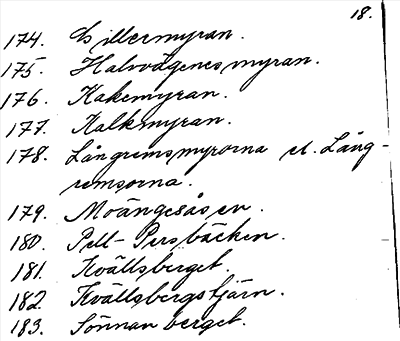 18.
174. Lillermyran.
175. Halvvägenes myran.
176. Kakemyran.
177. Kalkmyran.
178. Långremsmyrorna el. Lång-
remsorna.
179. Moängesåsen.
180. Pell-Persbäcken.
181. Kvällsberget.
182. Kvällsbergstjärn.
183. Sönnanberget.